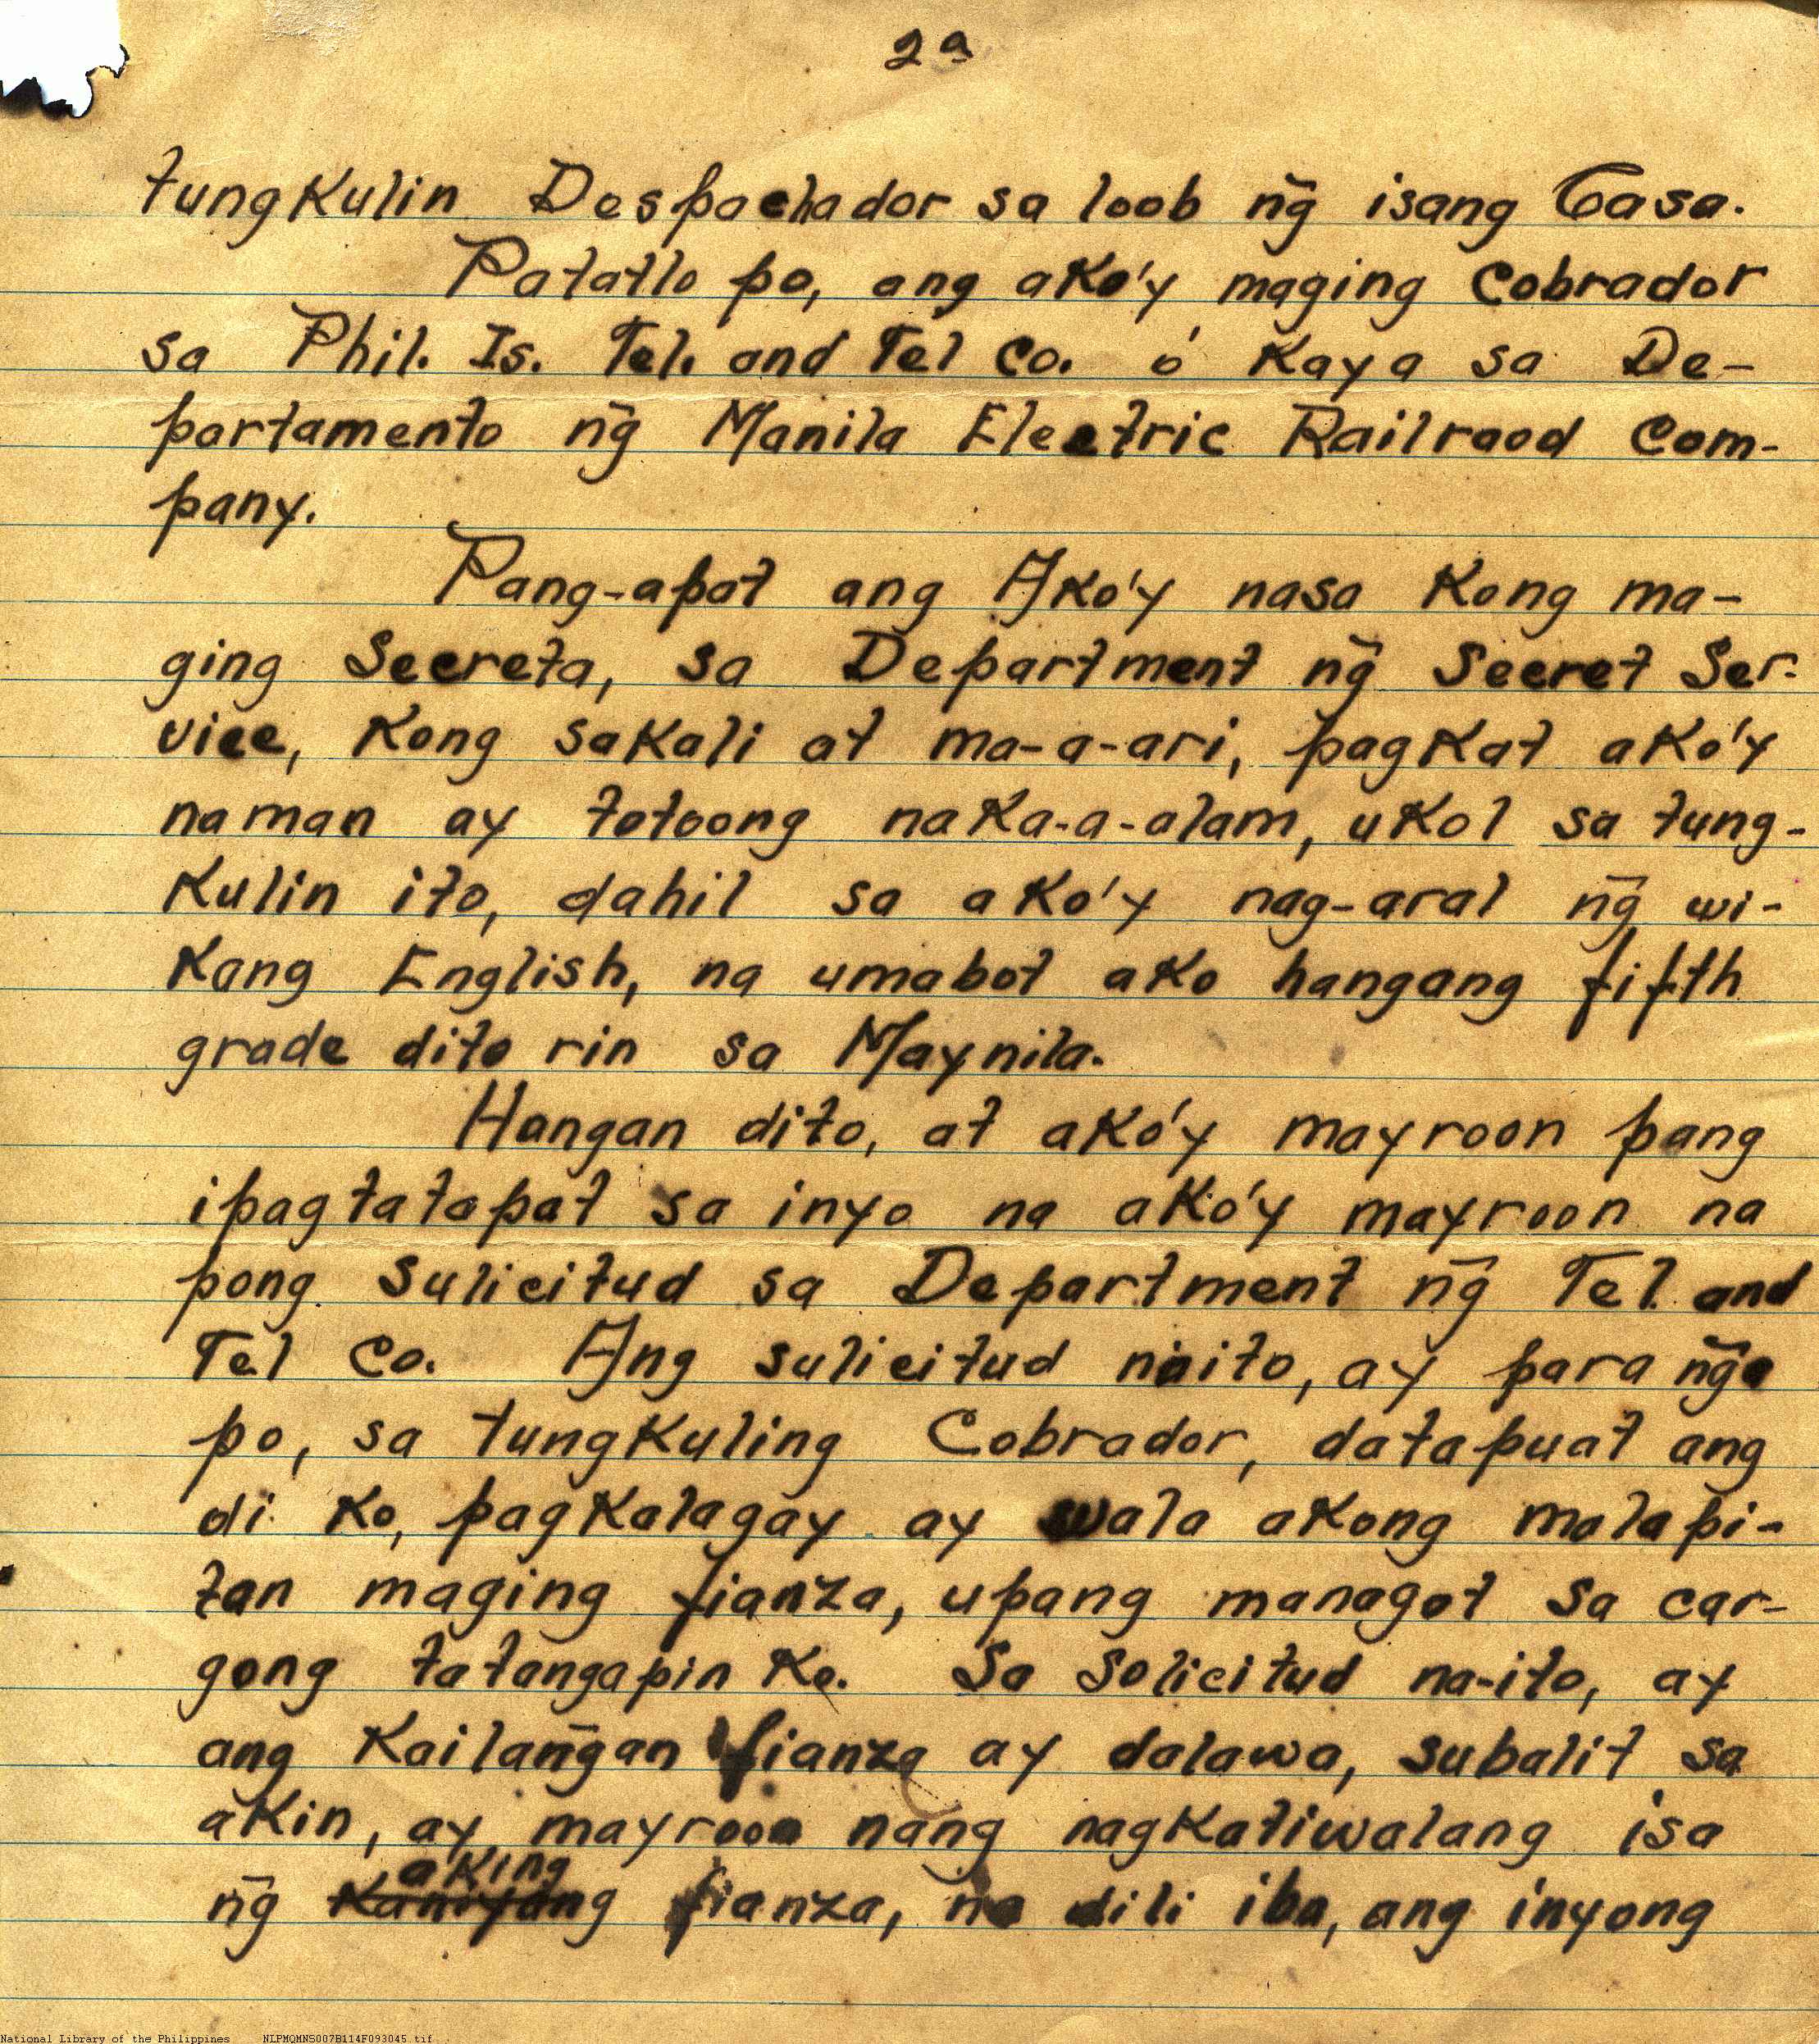 2a
tungkulin Despachador sa loob ng̃ isang Casa.
Patatlo po, ang ako'y maging Cobrador
sa Phil. Is. Tel. and Tel Co. ó kaya sa De-
partamento ng̃ Manila Electric Railraod Com-
pany.
Pang-apat ang Ako'y nasa Kong ma-
ging Secreta, sa Department ng̃ Secret Ser-
vice, Kong sakali at ma-a-ari, pagkat ako'y
naman ay totoong naka-a-alam, ukol sa tung-
kulin ito, dahil sa ako'y nag-aral ng̃ wi-
kang English, na umabot ako hangang fifth
grade dito rin sa Maynila.
Hangan dito, at ako'y mayroon pang
ipagtatapat sa inyo na ako'y mayroon na
pong sulicitud sa Department ng̃ Tel and
Tel Co. Ang sulicitud naito, ay para ng̃a
po, sa tungkuling Cobrador, datapuat ang
di ko, pagkalagay ay wala akong malapi-
tan maging fianza, upang managot sa car-
gong tatangapin ko. Sa solicitud na-ito, ay
ang Kailang̃an fianza ay dalawa, subalit sa
akin, ay mayroon nang nagkatiwalang isa
aking
ng̃ Kaniyang fianza, na dili iba, ang inyong
National Library of the Philippines NLPMQMNS007B114F093045.tif